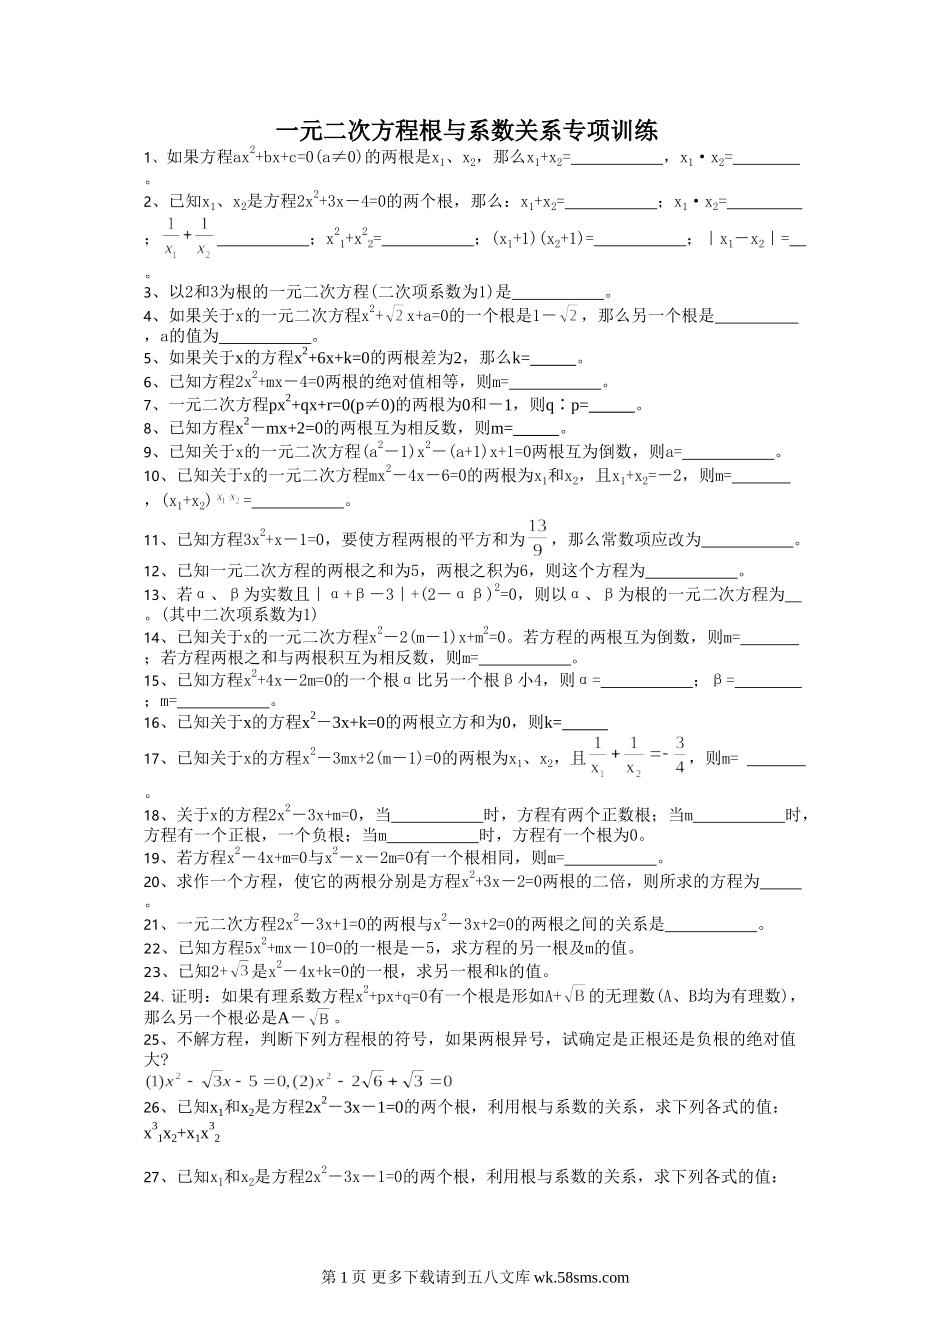 一元二次方程根与系数关系专项训练
1、如果方程ax²+bx+c=0(a≠0)的两根是x₁、x₂，那么x₁+x₂=__________，x₁·x₂=________
。
2、已知x₁、x₂是方程2x²+3x－4=0的两个根，那么：x₁+x₂=__________；x₁·x₂=________
；1/x₁+1/x₂__________；x²₁+x²₂=__________；(x₁+1)(x₂+1)=__________；｜x₁－x₂｜=__
。
3、以2和3为根的一元二次方程(二次项系数为1)是__________。
4、如果关于x的一元二次方程x²+√2x+a=0的一个根是1－√2，那么另一个根是_________
，a的值为__________。
5、如果关于x的方程x²+6x+k=0的两根差为2，那么k=_____。
6、已知方程2x²+mx－4=0两根的绝对值相等，则m=__________。
7、一元二次方程px²+qx+r=0(p≠0)的两根为0和－1，则q∶p=_____。
8、已知方程x²－mx+2=0的两根互为相反数，则m=_____。
9、已知关于x的一元二次方程(a²－1)x²－(a+1)x+1=0两根互为倒数，则a=__________。
10、已知关于x的一元二次方程mx²－4x－6=0的两根为x₁和x₂，且x₁+x₂=－2，则m=_______
，(x₁+x₂)^(x₁·x₂)=__________。
11、已知方程3x²+x－1=0，要使方程两根的平方和为13/9，那么常数项应改为__________。
12、已知一元二次方程的两根之和为5，两根之积为6，则这个方程为__________。
13、若α、β为实数且｜α+β－3｜+(2－αβ)²=0，则以α、β为根的一元二次方程为__
。(其中二次项系数为1)
14、已知关于x的一元二次方程x²－2(m－1)x+m²=0。若方程的两根互为倒数，则m=_______
；若方程两根之和与两根积互为相反数，则m=__________。
15、已知方程x²+4x－2m=0的一个根α比另一个根β小4，则α=__________；β=________
；m=__________。
16、已知关于x的方程x²－3x+k=0的两根立方和为0，则k=_____
17、已知关于x的方程x²－3mx+2(m－1)=0的两根为x₁、x₂，且1/x₁+1/x₂=－3/4，则m= _______
。
18、关于x的方程2x²－3x+m=0，当__________时，方程有两个正数根；当m__________时，
方程有一个正根，一个负根；当m__________时，方程有一个根为0。
19、若方程x²－4x+m=0与x²－x－2m=0有一个根相同，则m=__________。
20、求作一个方程，使它的两根分别是方程x²+3x－2=0两根的二倍，则所求的方程为_____
。
21、一元二次方程2x²－3x+1=0的两根与x²－3x+2=0的两根之间的关系是__________。
22、已知方程5x²+mx－10=0的一根是－5，求方程的另一根及m的值。
23、已知2+√3是x²－4x+k=0的一根，求另一根和k的值。
24、证明：如果有理系数方程x²+px+q=0有一个根是形如A+√B的无理数(A、B均为有理数)，
那么另一个根必是A－√B。
25、不解方程，判断下列方程根的符号，如果两根异号，试确定是正根还是负根的绝对值
大?
(1)x²-√3x-5=0,(2)x²-2√6+√3=0
26、已知x₁和x₂是方程2x²－3x－1=0的两个根，利用根与系数的关系，求下列各式的值：
x³₁x₂+x₁x³₂
27、已知x₁和x₂是方程2x²－3x－1=0的两个根，利用根与系数的关系，求下列各式的值：
第 1 页 更多下载请到五八文库 wk.58sms.com